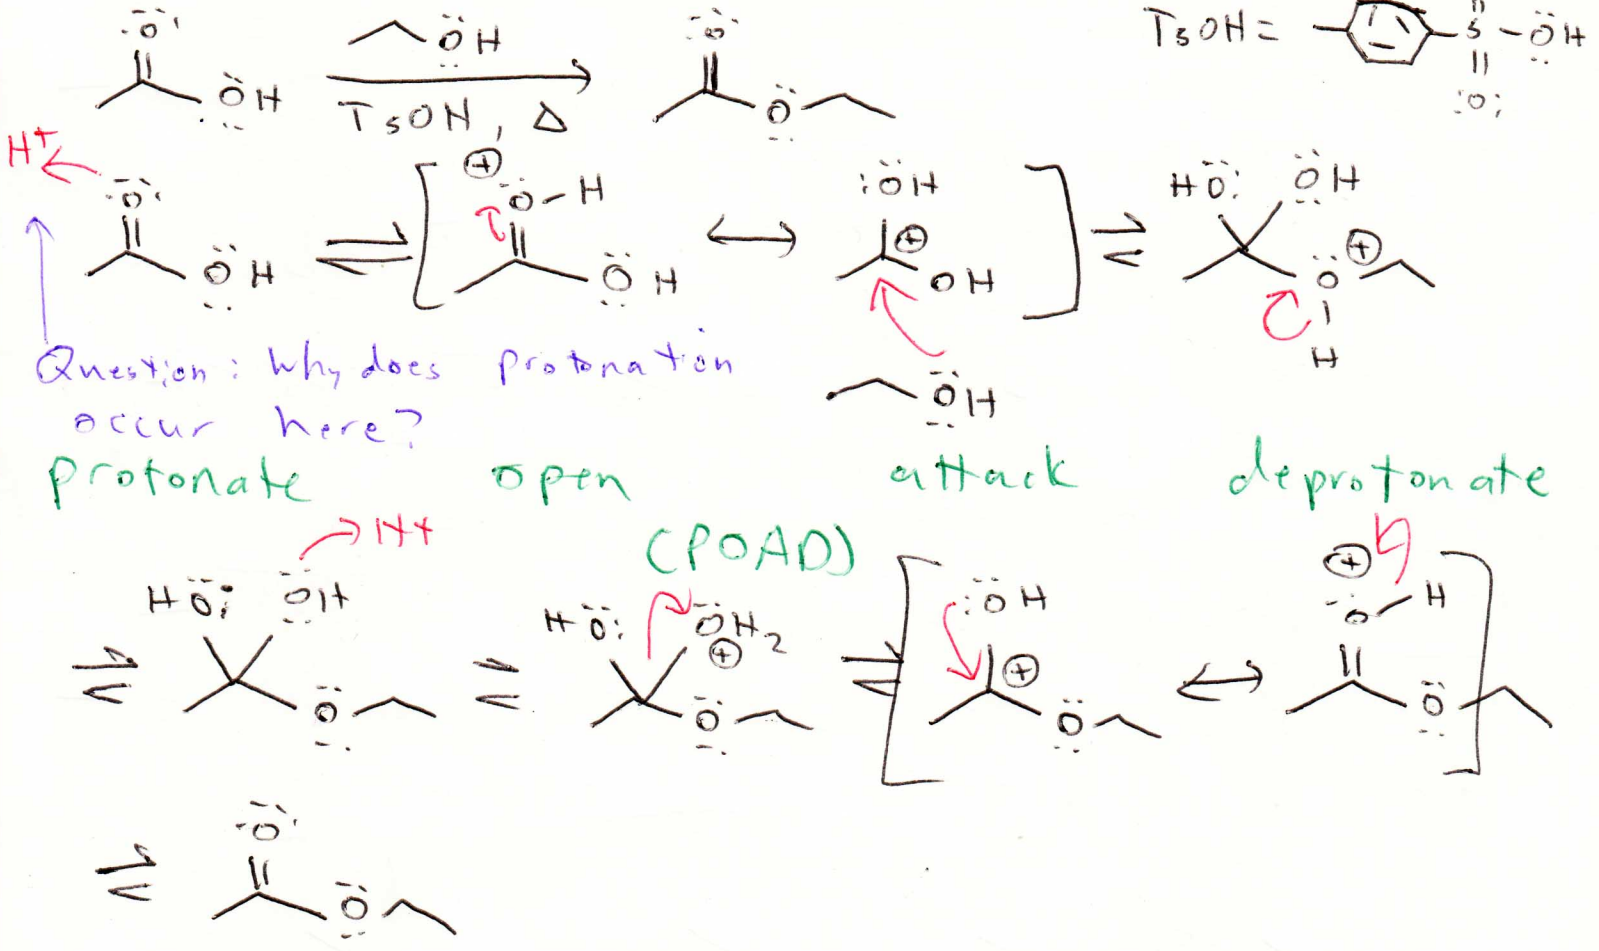 :O: OH TsOH, Δ :O: O TsOH = S - OH
O
H+
O OH ⊕ O - H OH :OH ⊕ OH HO: OH O ⊕ H
OH
Question: Why does protonation
occur here?
protonate open attack deprotonate
(POAD)
H+
HO: OH O HO: OH2 ⊕ O :OH ⊕ O ⊕ O H O
O O